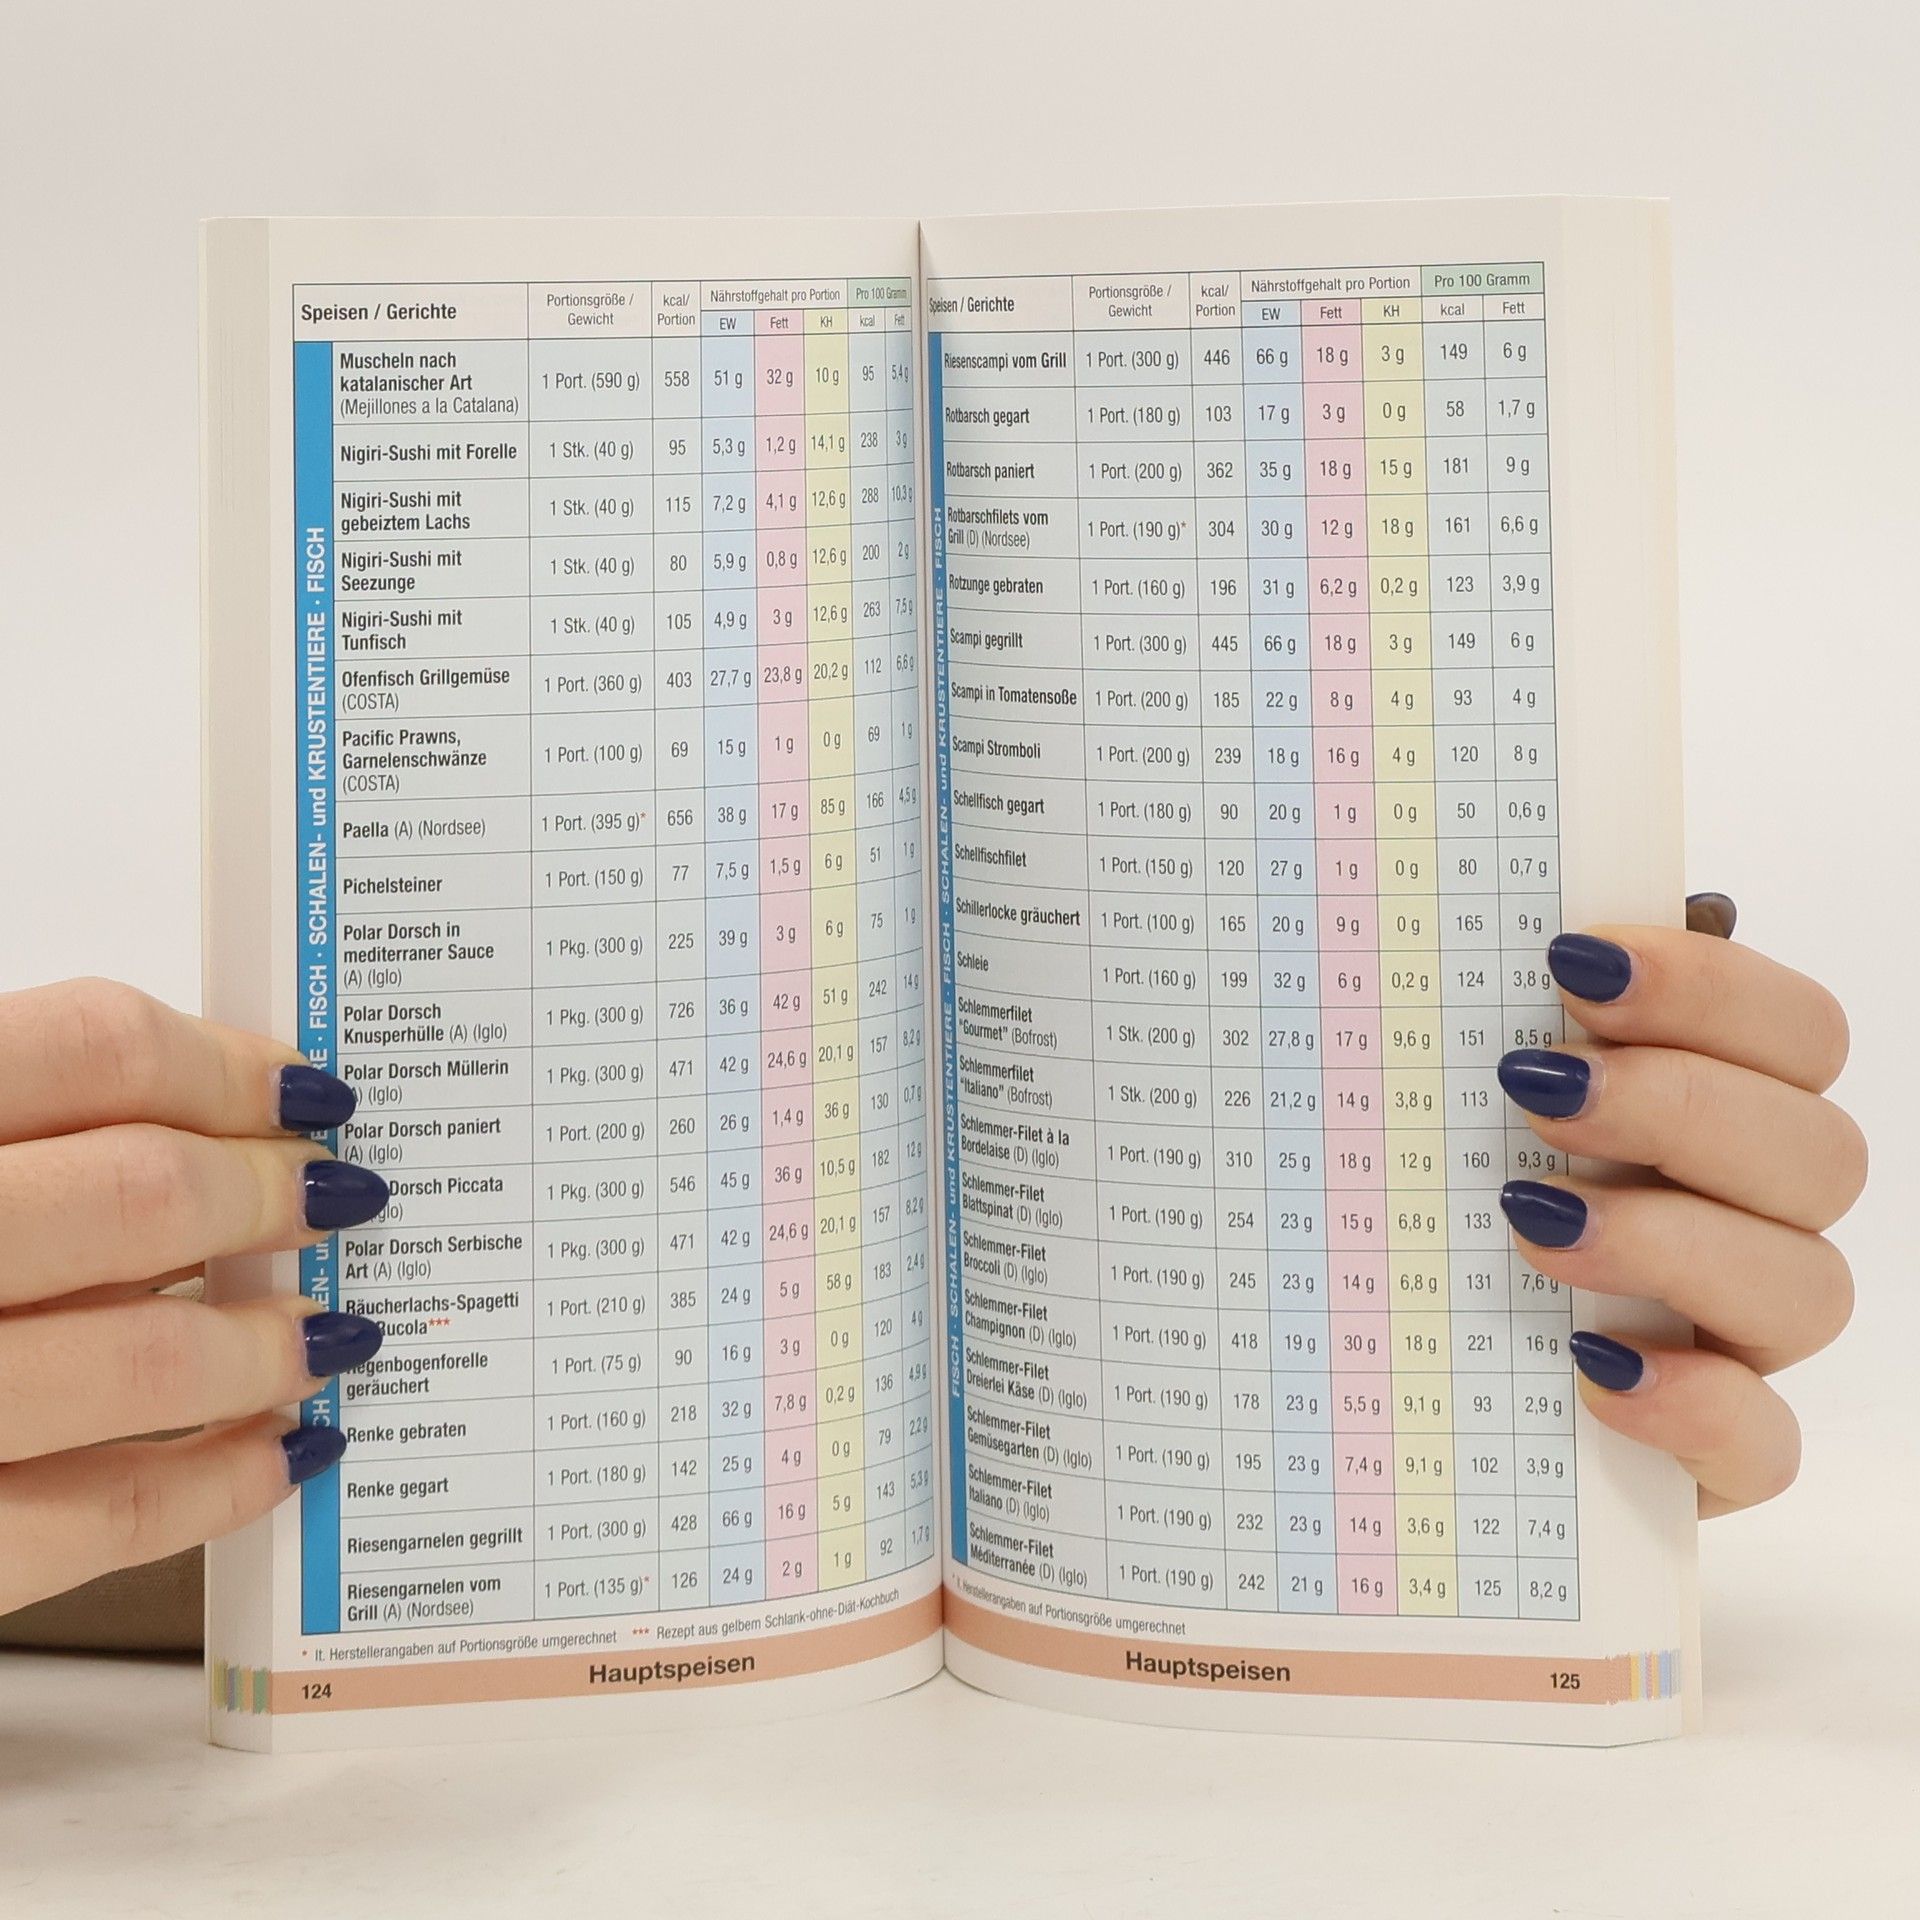 Speisen / Gerichte Portionsgröße / Gewicht kcal/ Portion Nährstoffgehalt pro Portion Pro 100 Gramm
EW Fett KH kcal Fett
FISCH · SCHALEN- und KRUSTENTIERE · FISCH
Muscheln nach katalanischer Art (Mejillones a la Catalana) 1 Port. (590 g) 558 51 g 32 g 10 g 95 5,4 g
Nigiri-Sushi mit Forelle 1 Stk. (40 g) 95 5,3 g 1,2 g 14,1 g 238 3 g
Nigiri-Sushi mit gebeiztem Lachs 1 Stk. (40 g) 115 7,2 g 4,1 g 12,6 g 288 10,3 g
Nigiri-Sushi mit Seezunge 1 Stk. (40 g) 80 5,9 g 0,8 g 12,6 g 200 2 g
Nigiri-Sushi mit Tunfisch 1 Stk. (40 g) 105 4,9 g 3 g 12,6 g 263 7,5 g
Ofenfisch Grillgemüse (COSTA) 1 Port. (360 g) 403 27,7 g 23,8 g 20,2 g 112 6,6 g
Pacific Prawns, Garnelenschwänze (COSTA) 1 Port. (100 g) 69 15 g 1 g 0 g 69 1 g
Paella (A) (Nordsee) 1 Port. (395 g)* 656 38 g 17 g 85 g 166 4,5 g
Pichelsteiner 1 Port. (150 g) 77 7,5 g 1,5 g 6 g 51 1 g
Polar Dorsch in mediterraner Sauce (A) (Iglo) 1 Pkg. (300 g) 225 39 g 3 g 6 g 75 1 g
Polar Dorsch Knusperhülle (A) (Iglo) 1 Pkg. (300 g) 726 36 g 42 g 51 g 242 14 g
Polar Dorsch Müllerin (Iglo) 1 Pkg. (300 g) 471 42 g 24,6 g 20,1 g 157 8,2 g
Polar Dorsch paniert (A) (Iglo) 1 Port. (200 g) 260 26 g 1,4 g 36 g 130 0,7 g
Dorsch Piccata 1 Pkg. (300 g) 546 45 g 36 g 10,5 g 182 12 g
Polar Dorsch Serbische Art (A) (Iglo) 1 Pkg. (300 g) 471 42 g 24,6 g 20,1 g 157 8,2 g
Räucherlachs-Spagetti Rucola*** 1 Port. (210 g) 385 24 g 5 g 58 g 183 2,4 g
Regenbogenforelle geräuchert 1 Port. (75 g) 90 16 g 3 g 0 g 120 4 g
Renke gebraten 1 Port. (160 g) 218 32 g 7,8 g 0,2 g 136 4,9 g
Renke gegart 1 Port. (180 g) 142 25 g 4 g 0 g 79 2,2 g
Riesengarnelen gegrillt 1 Port. (300 g) 428 66 g 16 g 5 g 143 5,3 g
Riesengarnelen vom Grill (A) (Nordsee) 1 Port. (135 g)* 126 24 g 2 g 1 g 92 1,7 g
* lt. Herstellerangaben auf Portionsgröße umgerechnet *** Rezept aus gelbem Schlank-ohne-Diät-Kochbuch
124 Hauptspeisen
Speisen / Gerichte Portionsgröße / Gewicht kcal/ Portion Nährstoffgehalt pro Portion Pro 100 Gramm
EW Fett KH kcal Fett
FISCH · SCHALEN- und KRUSTENTIERE · FISCH · SCHALEN- und KRUSTENTIERE · FISCH
Riesenscampi vom Grill 1 Port. (300 g) 446 66 g 18 g 3 g 149 6 g
Rotbarsch gegart 1 Port. (180 g) 103 17 g 3 g 0 g 58 1,7 g
Rotbarsch paniert 1 Port. (200 g) 362 35 g 18 g 15 g 181 9 g
Rotbarschfilets vom Grill (D) (Nordsee) 1 Port. (190 g)* 304 30 g 12 g 18 g 161 6,6 g
Rotzunge gebraten 1 Port. (160 g) 196 31 g 6,2 g 0,2 g 123 3,9 g
Scampi gegrillt 1 Port. (300 g) 445 66 g 18 g 3 g 149 6 g
Scampi in Tomatensoße 1 Port. (200 g) 185 22 g 8 g 4 g 93 4 g
Scampi Stromboli 1 Port. (200 g) 239 18 g 16 g 4 g 120 8 g
Schellfisch gegart 1 Port. (180 g) 90 20 g 1 g 0 g 50 0,6 g
Schellfischfilet 1 Port. (150 g) 120 27 g 1 g 0 g 80 0,7 g
Schillerlocke gräuchert 1 Port. (100 g) 165 20 g 9 g 0 g 165 9 g
Schleie 1 Port. (160 g) 199 32 g 6 g 0,2 g 124 3,8 g
Schlemmerfilet "Gourmet" (Bofrost) 1 Stk. (200 g) 302 27,8 g 17 g 9,6 g 151 8,5 g
Schlemmerfilet "Italiano" (Bofrost) 1 Stk. (200 g) 226 21,2 g 14 g 3,8 g 113
Schlemmer-Filet à la Bordelaise (D) (Iglo) 1 Port. (190 g) 310 25 g 18 g 12 g 160 9,3 g
Schlemmer-Filet Blattspinat (D) (Iglo) 1 Port. (190 g) 254 23 g 15 g 6,8 g 133
Schlemmer-Filet Broccoli (D) (Iglo) 1 Port. (190 g) 245 23 g 14 g 6,8 g 131 7,6 g
Schlemmer-Filet Champignon (D) (Iglo) 1 Port. (190 g) 418 19 g 30 g 18 g 221 16 g
Schlemmer-Filet Dreierlei Käse (D) (Iglo) 1 Port. (190 g) 178 23 g 5,5 g 9,1 g 93 2,9 g
Schlemmer-Filet Gemüsegarten (D) (Iglo) 1 Port. (190 g) 195 23 g 7,4 g 9,1 g 102 3,9 g
Schlemmer-Filet Italiano (D) (Iglo) 1 Port. (190 g) 232 23 g 14 g 3,6 g 122 7,4 g
Schlemmer-Filet Méditerranée (D) (Iglo) 1 Port. (190 g) 242 21 g 16 g 3,4 g 125 8,2 g
* lt. Herstellerangaben auf Portionsgröße umgerechnet
Hauptspeisen 125